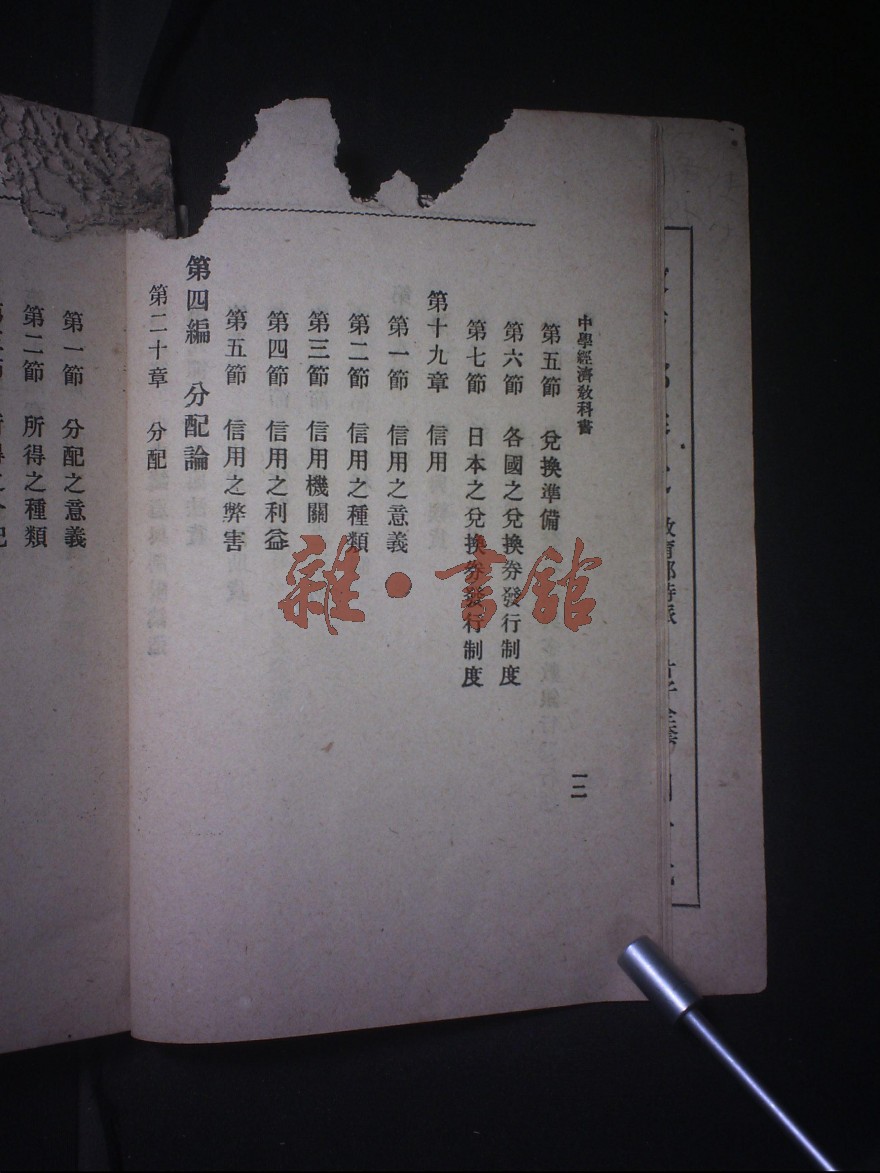 中學經濟教科書
第五節　兌換準備
第六節　各國之兌換券發行制度
第七節　日本之兌換券發行制度
第十九章　信用
第一節　信用之意義
第二節　信用之種類
第三節　信用機關
第四節　信用之利益
第五節　信用之弊害
第四編　分配論
第二十章　分配
一二
第一節　分配之意義
第二節　所得之種類
雜·書館